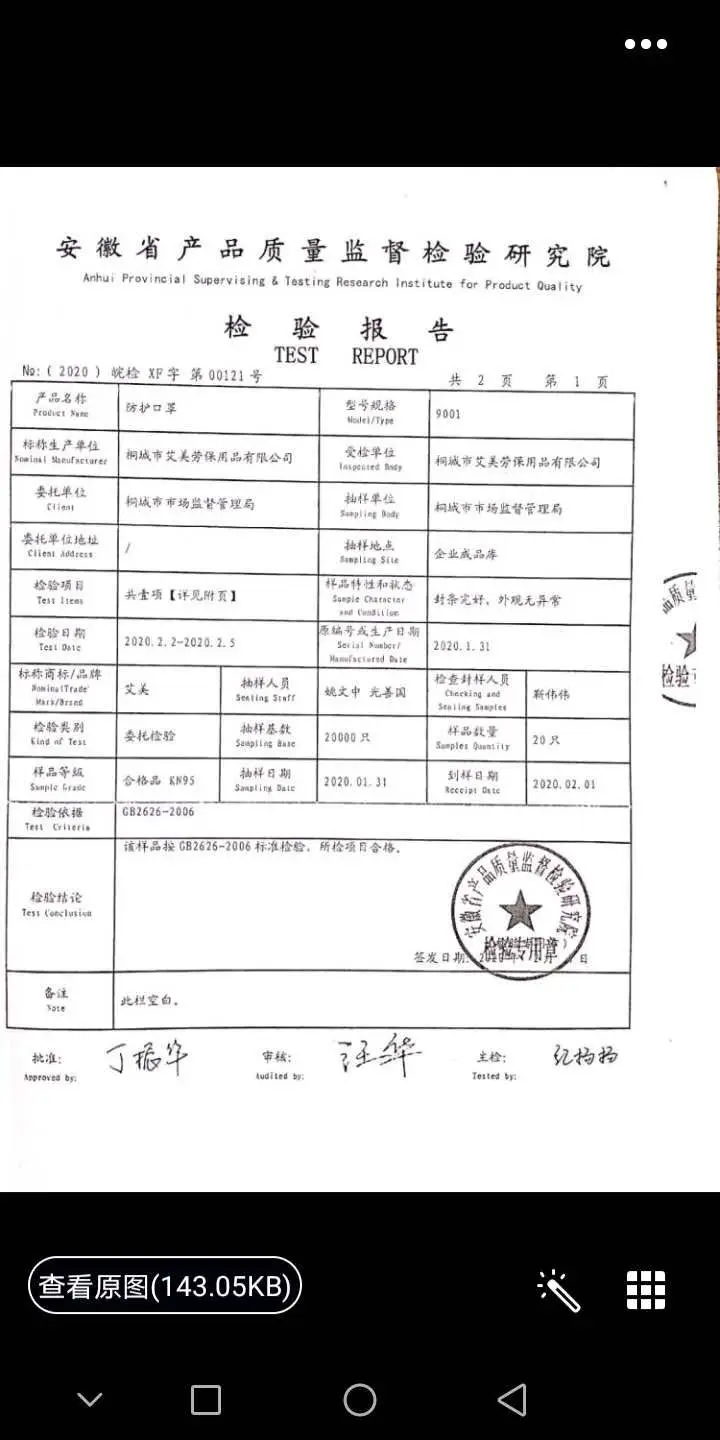 安徽省产品质量监督检验研究院
Anhui Provincial Supervising & Testing Research Institute for Product Quality
检验报告
TEST REPORT
№:(2020) 皖检 XF字 第00121号
共 2 页 第 1 页
产品名称 防护口罩 型号规格 9001
Product Name Model/Type
标称生产单位 桐城市艾美劳保用品有限公司 受检单位 桐城市艾美劳保用品有限公司
Nominal Manufacturer Inspected Body
委托单位 桐城市市场监督管理局 抽样单位 桐城市市场监督管理局
Client Sampling Body
委托单位地址 / 抽样地点 企业成品库
Client Address Sampling Site
检验项目 共壹项【详见附页】 样品特性和状态 封条完好、外观无异常
Test Items Sample Character
and Condition
检验日期 2020.2.2-2020.2.5 原编号或生产日期 2020.1.31
Test Date Serial Number/
Manufactured Date
标称商标/品牌 艾美 抽样人员 姚文中 光善国 检查封样人员 靳伟伟
NominalTrade Sealing Staff Checking and
Mark/Brand Sealing Samples
检验类别 委托检验 抽样基数 20000只 样品数量 20只
Kind of Test Sampling Base Samples Quantity
样品等级 合格品 KN95 抽样日期 2020.01.31 到样日期 2020.02.01
Sample Grade Sampling Date Receipt Date
检验依据 GB2626-2006
Test Criteria
该样品按GB2626-2006标准检验，所检项目合格。
检验结论
Test Conclusion
安徽省产品质量监督检验研究院
检验专用章
签发日期:
备注 此栏空白。
Note
批准: 丁振华 审核: 汪华 主检: 纪杨杨
Approved by: Audited by: Tested by:
品质量
检验
查看原图(143.05KB)